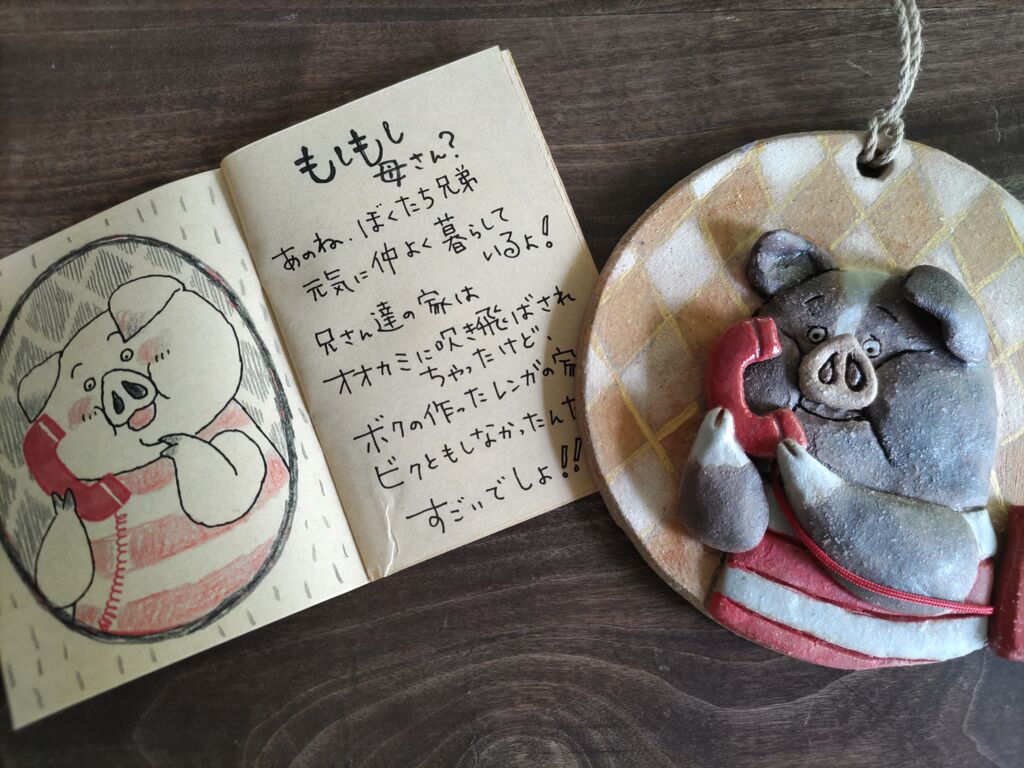 もしもし
母さん?
あのね、ぼくたち兄弟
元気に仲よく暮らして
いるよ!
兄さん達の家は
オオカミに吹き飛ばされ
ちゃったけど、
ボクの作ったレンガの家
ビクともしなかったんだ
すごいでしょ!!